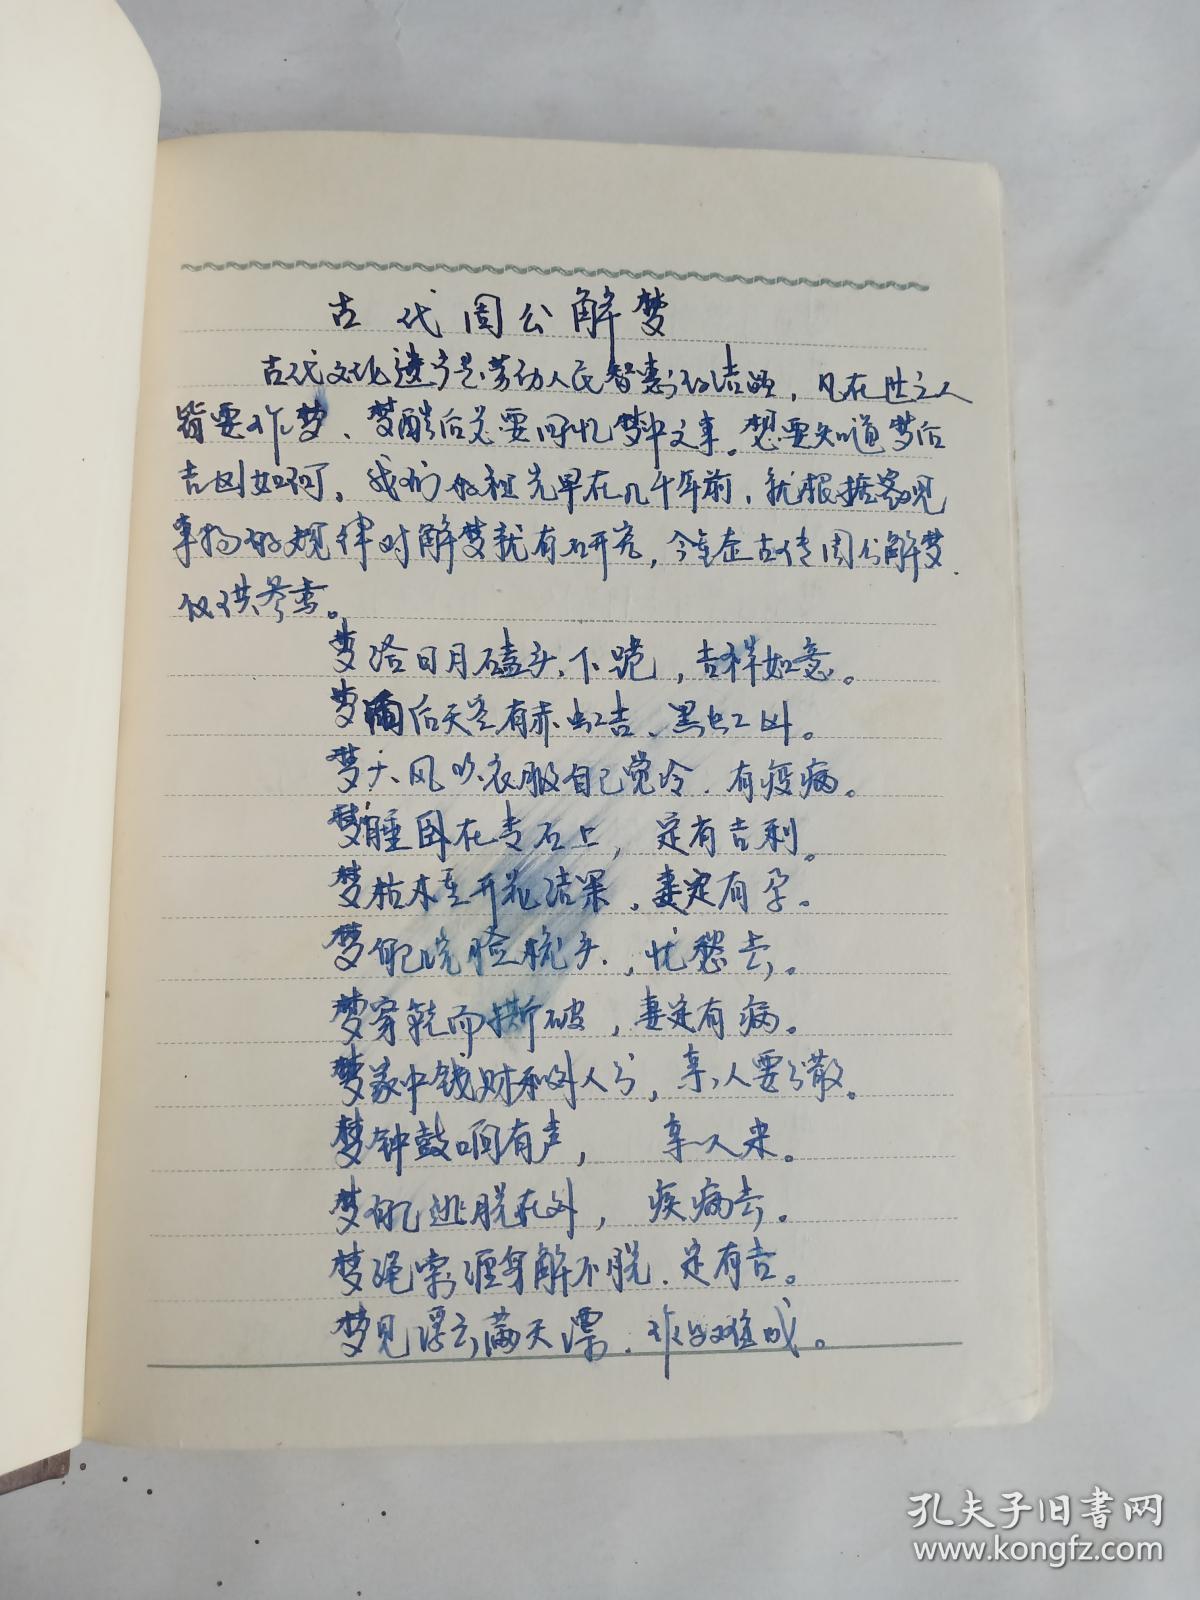 古代周公解梦
古代文化遗产是劳动人民智慧的结晶，凡在世之人
皆要作梦、梦醒后总要回忆梦中之事。想要知道梦后
吉凶如何，我们的祖先早在几千年前，就根据客观
事物的规律对解梦就有研究，今查古传周公解梦
仅供参考。
梦给日月磕头下跪，吉祥如意。
梦雨后天空有赤虹吉、黑虹凶。
梦大风吹衣服自己觉冷．有疫病。
梦睡卧在青石上，定有吉利。
梦枯木上开花结果，妻定有孕。
梦自己洗脸梳头，忧愁去。
梦穿靴而撕破，妻定有病。
梦家中钱财和外人分，亲人要分散。
梦钟鼓响有声，亲人来。
梦自己逃脱在外，疾病去。
梦绳索缠身解不脱．定有吉。
梦见浮云满天漂．作事难成。
孔夫子旧书网
www.kongfz.com